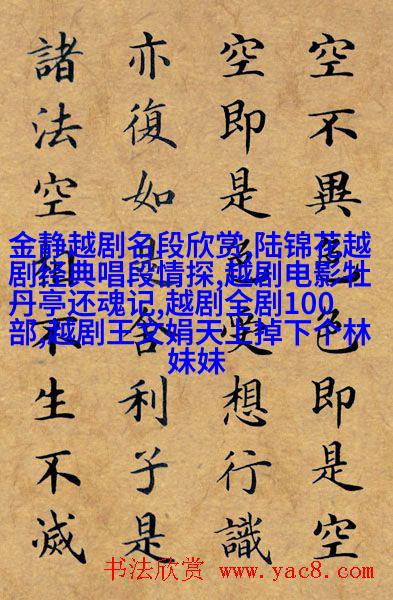 空不異色色即是空
空即是色受想行識
亦復如是舍利子是
諸法空相不生不滅
金静越剧名段欣赏,陆锦花越
剧经典唱段情探,越剧电影牡
丹亭还魂记,越剧全剧100
部,越剧王文娟天上掉下个林
妹妹
书法欣赏 www.yac8.com